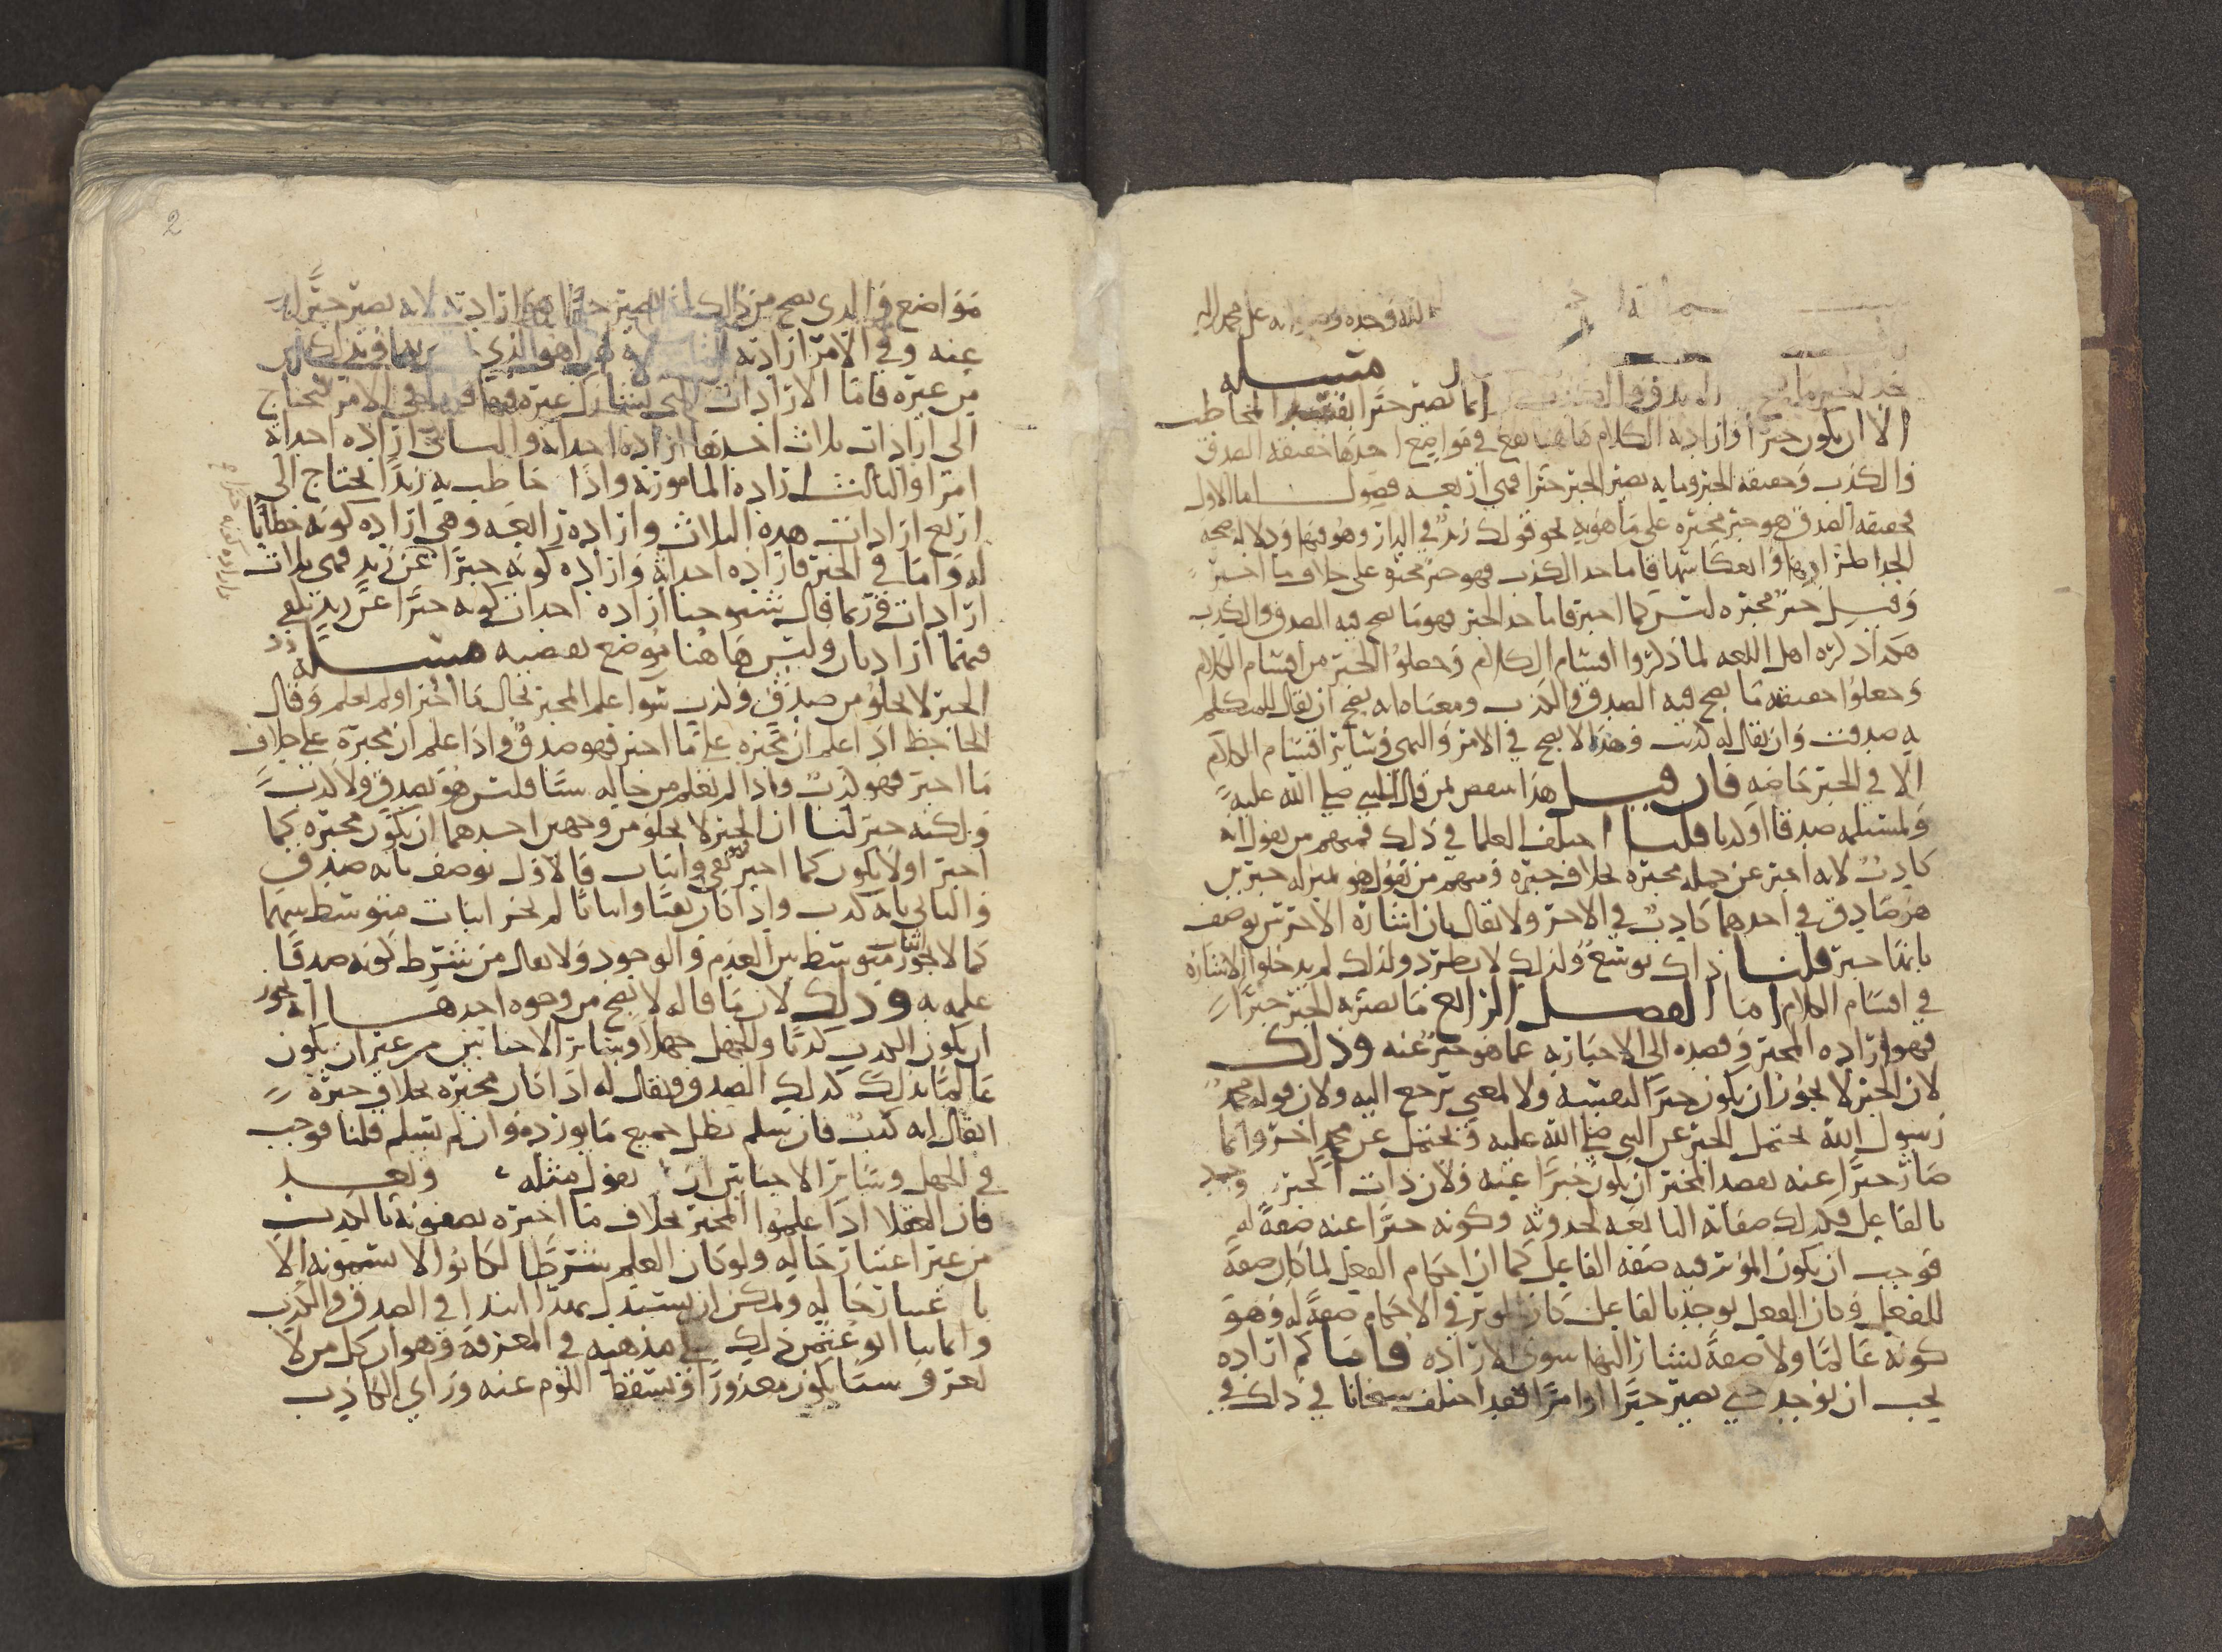 الله وحده وصلواته على محمد واله
مسله
حد الخبر ما يصح الصدق والكذب انما يصير خبرا بقصد المخاطب
الا ان يكون خبرا وارادة الكلام هاهنا يقع في مواضع احدها حقيقة الصدق
والكذب وحقيقة الخبر وما به يصير الخبر خبرا فهي اربعة فصول اما الاول
فحقيقة الصدق هو خبر مخبره على ما هو به نحو قولك زيد في الدار وهو فيها ودلالة صحة
الحد اطرادها وانعكاسها فاما حد الكذب فهو خبر مخبره على خلاف ما اخبر
وقيل خبر مخبره ليس كما اخبر فاما حد الخبر فهو ما يصح فيه الصدق والكذب
هكذا ذكره اهل اللغه لما ذكروا اقسام الكلام وجعلوا الخبر من اقسام الكلام
وجعلوا حقيقته ما يصح فيه الصدق والكذب ومعناه انه يصح ان يقال للمتكلم
به صدقت وان يقال له كذبت وهذا لا يصح في الامر والنهي وسائر اقسام الكلام
الا في الخبر خاصه فان قيل هذا ينتقض بمن قال النبي صلى الله عليه
ومسيلمه صدقا او كذبا قلنا اختلف العلما في ذلك فمنهم من يقول انه
كاذب لانه اخبر عن جمله مخبره بخلاف خبره ومنهم من يقول هو بمنزله خبرين
هو صادق في احدهما كاذب في الاخر ولا يقال بان اشاره الاخرس يوصف
بانها خبر قلنا ذاك توسع ولذلك لا يطرد ولذلك لم يدخلوا الاشاره
في اقسام الكلام اما الفصل الرابع ما يصير به الخبر خبرا
فهو ارادة المخبر وقصده الى الاخبار به عما هو خبر عنه وذلك
لان الخبر لا يجوز ان يكون خبرا لنفسه ولا لمعنى يرجع اليه ولان قوله محمد
رسول الله يحتمل الخبر عن النبي صلى الله عليه ويحتمل عن محمد اخر وانما
صار خبرا عنه بقصد المخبر ان يكون خبرا عنه ولان ذات الخبر وجد
بالفاعل فكذلك صفاته التابعه لحدوثه وكونه خبرا عنه صفة له
فوجب ان يكون المؤثر فيه صفة الفاعل كما ان احكام الفعل لما كان صفة
للفعل وكان الفعل يوجد بالفاعل كان المؤثر في الاحكام صفة له وهو
كونه عالما ولا صفة يشار اليها سوى الاراده فاما كم اراده
يجب ان يوجد حتى يصير خبرا او امرا فقد اختلف شيخانا في ذلك في
2
مواضع فالذي يصح من ذلك ان يصير خبرا هو ارادته لانه يصير خبرا له
عنه وفي الامر ارادته لانه هو الذي
من غيره فاما الارادات التي يشارك غيره فيها في الامر يحتاج
الى ارادات ثلاث احدها ارادة احداثه والثاني ارادة احداثه
امرا والثالث ارادة المامور به واذا خاطب به زيدا يحتاج الى
اربع ارادات هذه الثلاث وارادة رابعة وهي ارادة كونه خطابا
له واما في الخبر فارادة احداثه وارادة كونه خبرا عن زيد فهي ثلاث
ارادات وربما قال شيوخنا ارادة احداث كونه خبرا عن زيد تكفي
فهما ارادتان وليس هاهنا موضع تقصيه مسله
الخبر لا يخلو من صدق وكذب سوا علم المخبر بحال ما اخبر او لم يعلم وقال
الجاحظ اذا علم ان مخبره على ما اخبر فهو صدق واذا علم ان مخبره على خلاف
ما اخبر فهو كذب واذا لم يعلم من حاله شيا فليس هو بصدق ولا كذب
ولكنه خبر لنا ان الخبر لا يخلو من وجهين احدهما ان يكون مخبره كما
اخبر او لا يكون كما اخبر نفي واثبات فالاول يوصف بانه صدق
والثاني بانه كذب واذا كان نفيا واثباتا لم يجز اثبات متوسط بينهما
كما لا يجوز اثبات متوسط بين العدم والوجود ولا يقال من شرط كونه صدقا
علمه به وذلك لان ما قاله لا يصح من وجوه احدها انه يجوز
ان يكون الكذب كذبا والجهل جهلا وسائر الاجناس من غير ان يكون
عالما بذلك كذلك الصدق ويقال له اذا كان مخبره بخلاف خبره
ايقال انه كذب فان سلم بطل جميع ما يورده وان لم يسلم قلنا فوجب
في الجهل وسائر الاجناس ان يقول مثله وبعد
فان العقلا اذا علموا المخبر بخلاف ما اخبره يصفونه بالكذب
من غير اعتبار حاله ولو كان العلم شرطا لكانوا لا يسمونه الا
باعتبار حاله ويمكن ان يستدل بهذا ابتدا في الصدق والكذب
وانما بنا ابو عثمن ذلك على مذهبه في المعرفة وهو ان كل من لا
يعرف شيا يكون معذورا ويسقط اللوم عنه وراى الكاذب